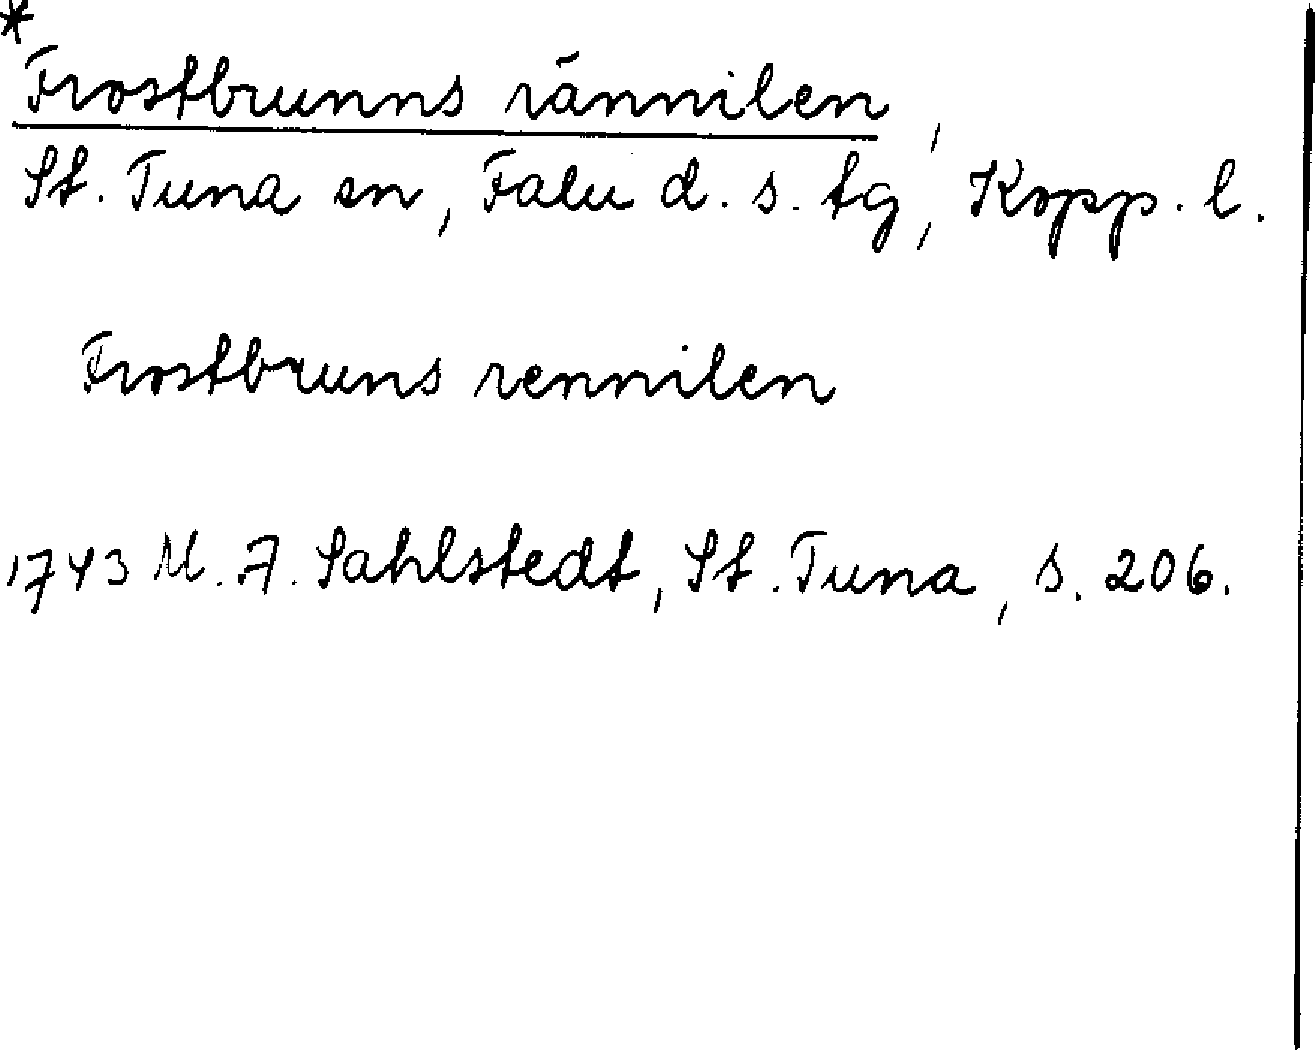 *
Frostbrunns rännilen,
St. Tuna sn, Falu d. s. tg, Kopp. l.
Frostbruns rennilen
1743 M. A. Sahlstedt, St. Tuna, s. 206.